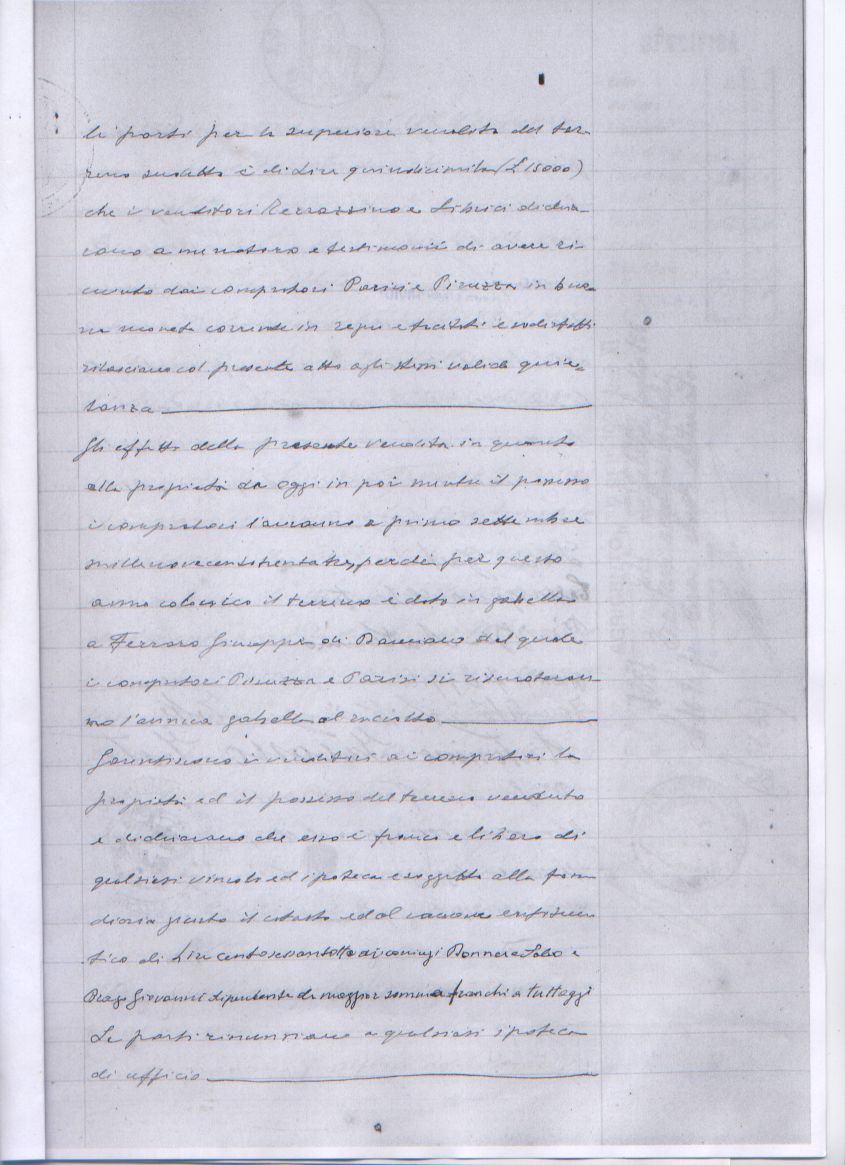 le parti per la superiore vendita del ter-
reno suddetto è di Lire quindicimila (£ 15000)
che i venditori Terrassino e Librici dichia-
rano a me notaro e testimonii di avere ri-
cevuto dai compratori Parisi e Piruzza in buo-
na moneta corrente in regno e tacitati e sodisfatti
rilasciano col presente atto agli stessi valida quie-
tanza
Gli effetti della presente vendita in quanto
alla proprietà da oggi in poi mentre il possesso
i compratori l'avranno a primo settembre
millenovecentotrentatre, perché per questo
anno colonico il terreno è dato in gabella
a Ferraro Giuseppe di Damiano dal quale
i compratori Piruzza e Parisi si riscuoteran
no l'annua gabella al raccolto
Garentiscono i venditori ai compratori la
proprietà ed il possesso del terreno venduto
e dichiarano che esso è franco e libero di
qualsiasi vincolo ed ipoteca e soggetto alla fon
diaria giusto il catasto ed al canone enfiteu
tico di Lire ai coniugi e
Giovanni dipendente da maggior somma franchi a tutt'oggi
Le parti rinunziano a qualsiasi ipoteca
di ufficio